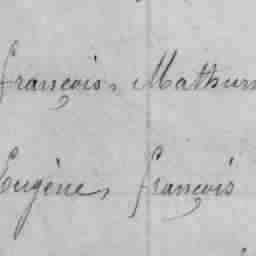 François, Mathurin
Eugène, François